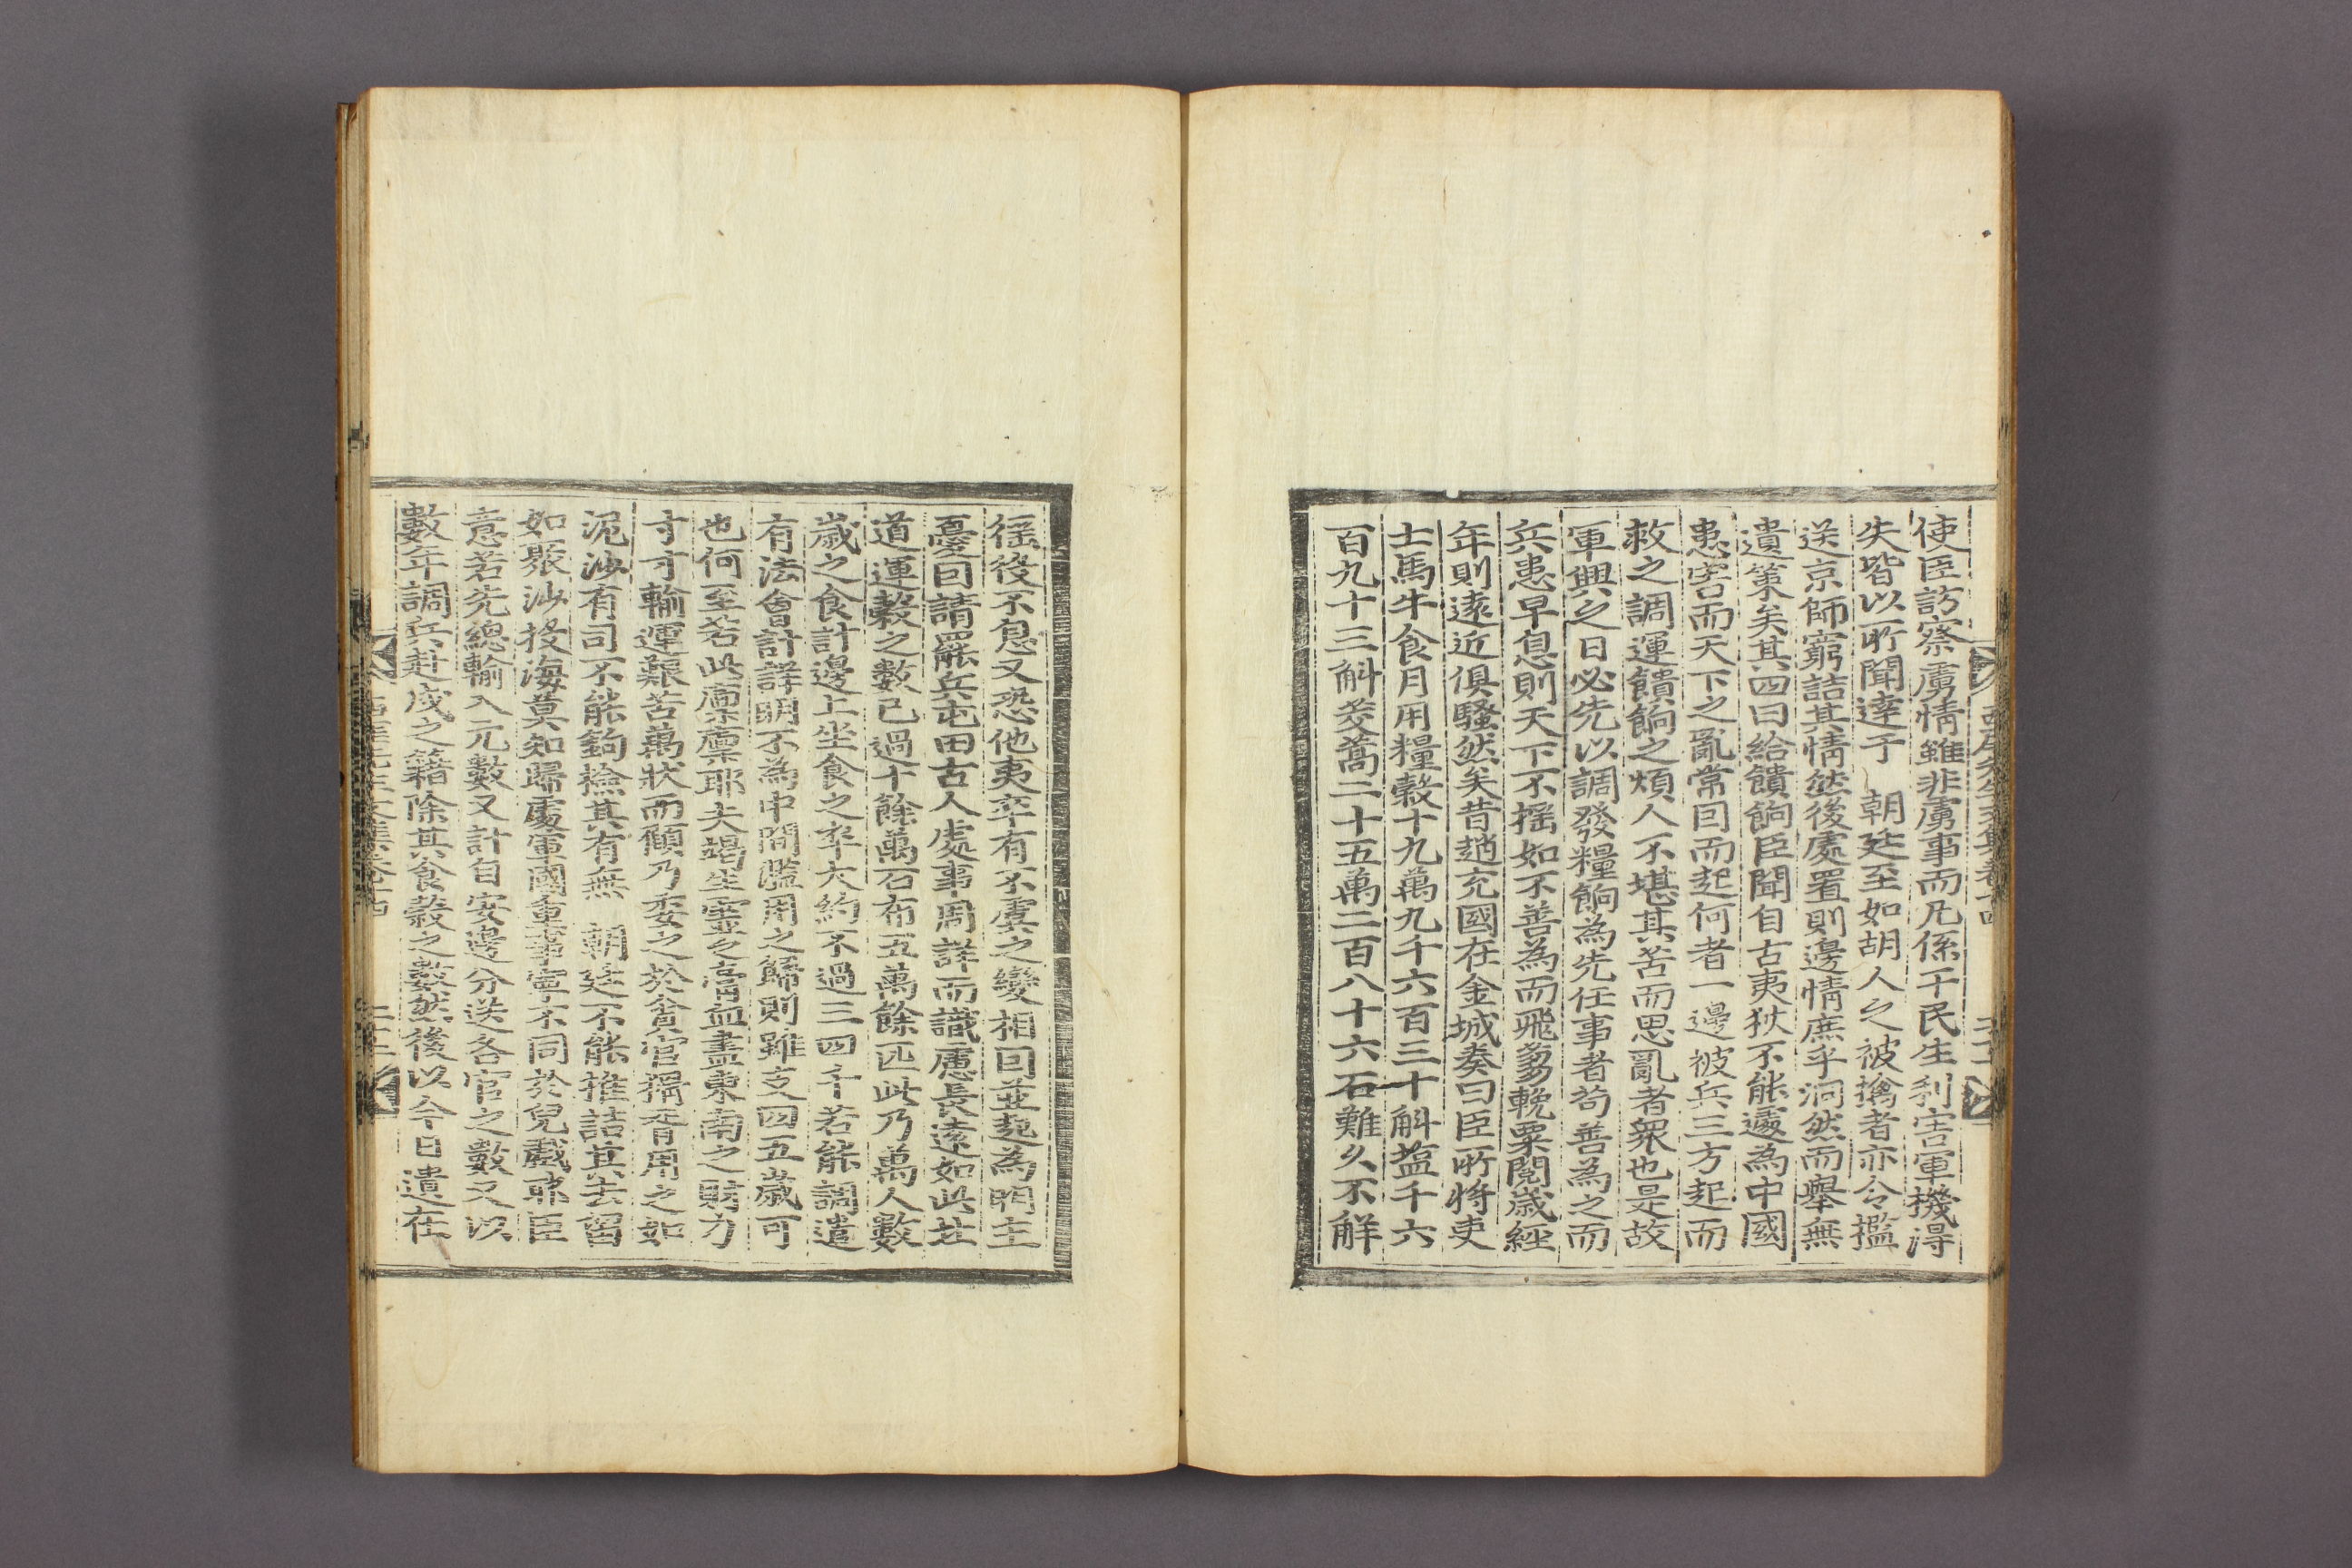 使臣訪察虜情雖非虜事而凡係干民生利害軍機得
失皆以所聞達于 朝廷至如胡人之被擒者亦令檻
送京師窮詰其情然後處置則邊情庶乎洞然而舉無
遺策矣其四曰給饋餉臣聞自古夷狄不能遽為中國
患害而天下之亂常因而起何者一邊被兵三方起而
救之調運饋餉之煩人不堪其苦而思亂者衆也是故
軍興之日必先以調發糧餉為先任事者苟善為之而
兵患早息則天下不搖如不善為而飛芻輓粟閱歲經
年則遠近俱騷然矣昔趙充國在金城奏曰臣所將吏
士馬牛食月用糧穀十九萬九千六百三十斛塩千六
百九十三斛茭藁二十五萬二百八十六石難久不解
徭役不息又恐他夷卒有不虞之變相因並起為明主
憂因請罷兵屯田古人處事周詳而識慮長遠如此北
道運穀之數已過十餘萬石布五萬餘匹此乃萬人數
歲之食計邊上坐食之卒大約不過三四千若能調遣
有法會計詳明不為中間濫用之歸則雖支四五歲可
也何至若此廩廩耶夫竭生靈之膏血盡東南之財力
寸寸輸運艱苦萬狀而顧乃委之於貪官猾胥用之如
泥沙有司不能鉤檢其有無 朝廷不能推詰其去留
如聚沙投海莫知歸處軍國重事寧不同於兒戲耶臣
意若先總輸入元數又計自安邊分送各官之數又以
數年調兵赴戍之籍除其食穀之數然後以今日遺在